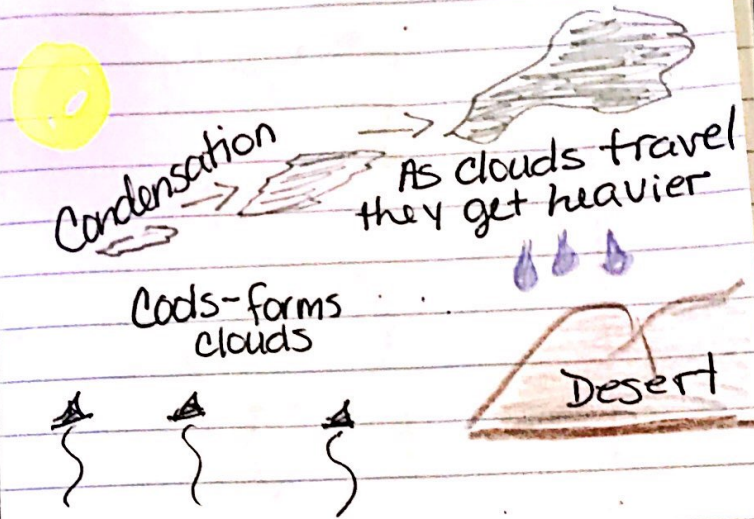 Condensation
As clouds travel
they get heavier
Cools-forms
clouds
Desert